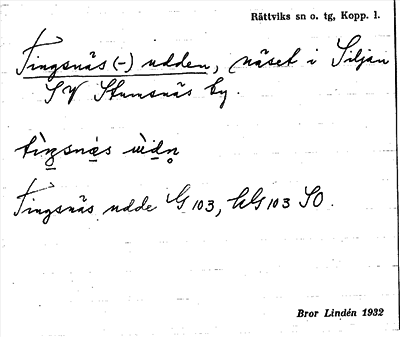 Rättviks sn o. tg, Kopp. l.
Tingsnäs (-) udden, näset i Siljan
SV Stumsnäs by.
Tingsnäs udde G 103, hG 103 SO.
Bror Lindén 1932